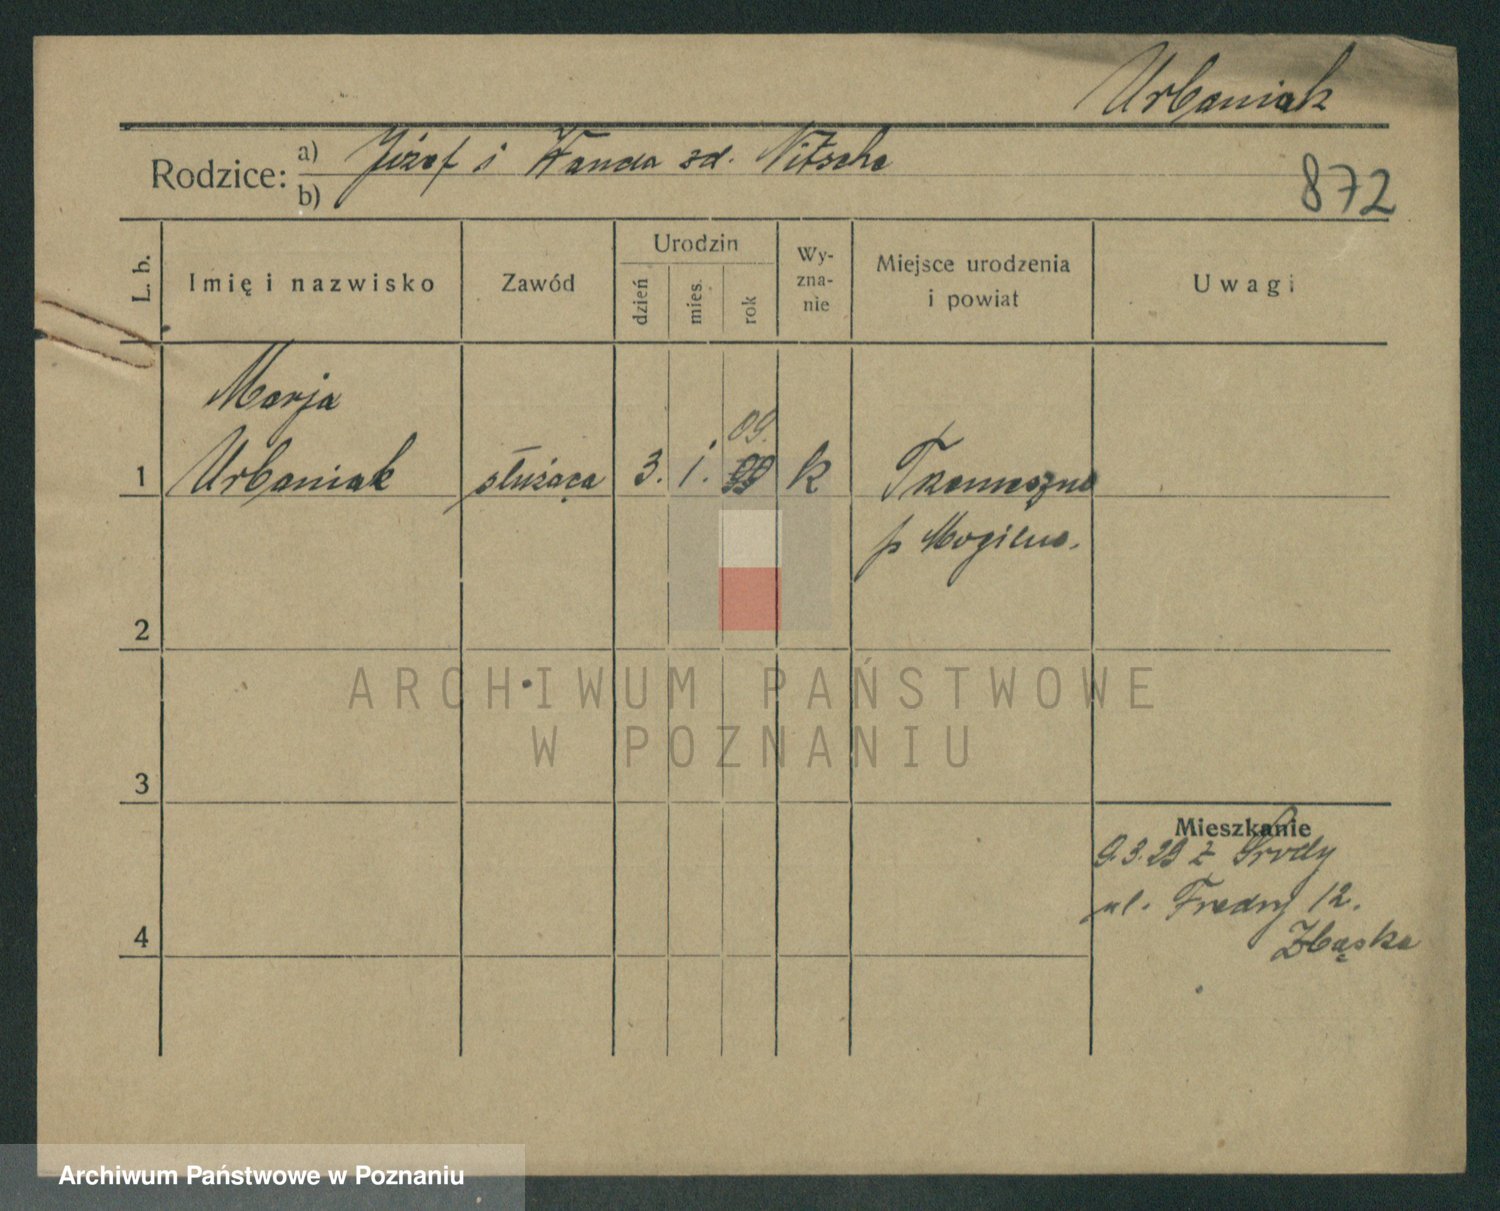 Urbaniak
Rodzice: a) Józef i Wanda zd. Nitsche
b)
872
L. b.
Imię i nazwisko
Zawód
Urodzin
dzień
mies.
rok
Wy-
zna-
nie
Miejsce urodzenia
i powiat
Uwagi
Marja
09.
1 Urbaniak służąca 3. 1. 99 k Trzemeszno
p Mogilno.
2
ARCHIWUM PAŃSTWOWE
W POZNANIU
3
Mieszkanie
9.3.29 z Środy
ul. Fredry 12.
Zbąska
4
Archiwum Państwowe w Poznaniu